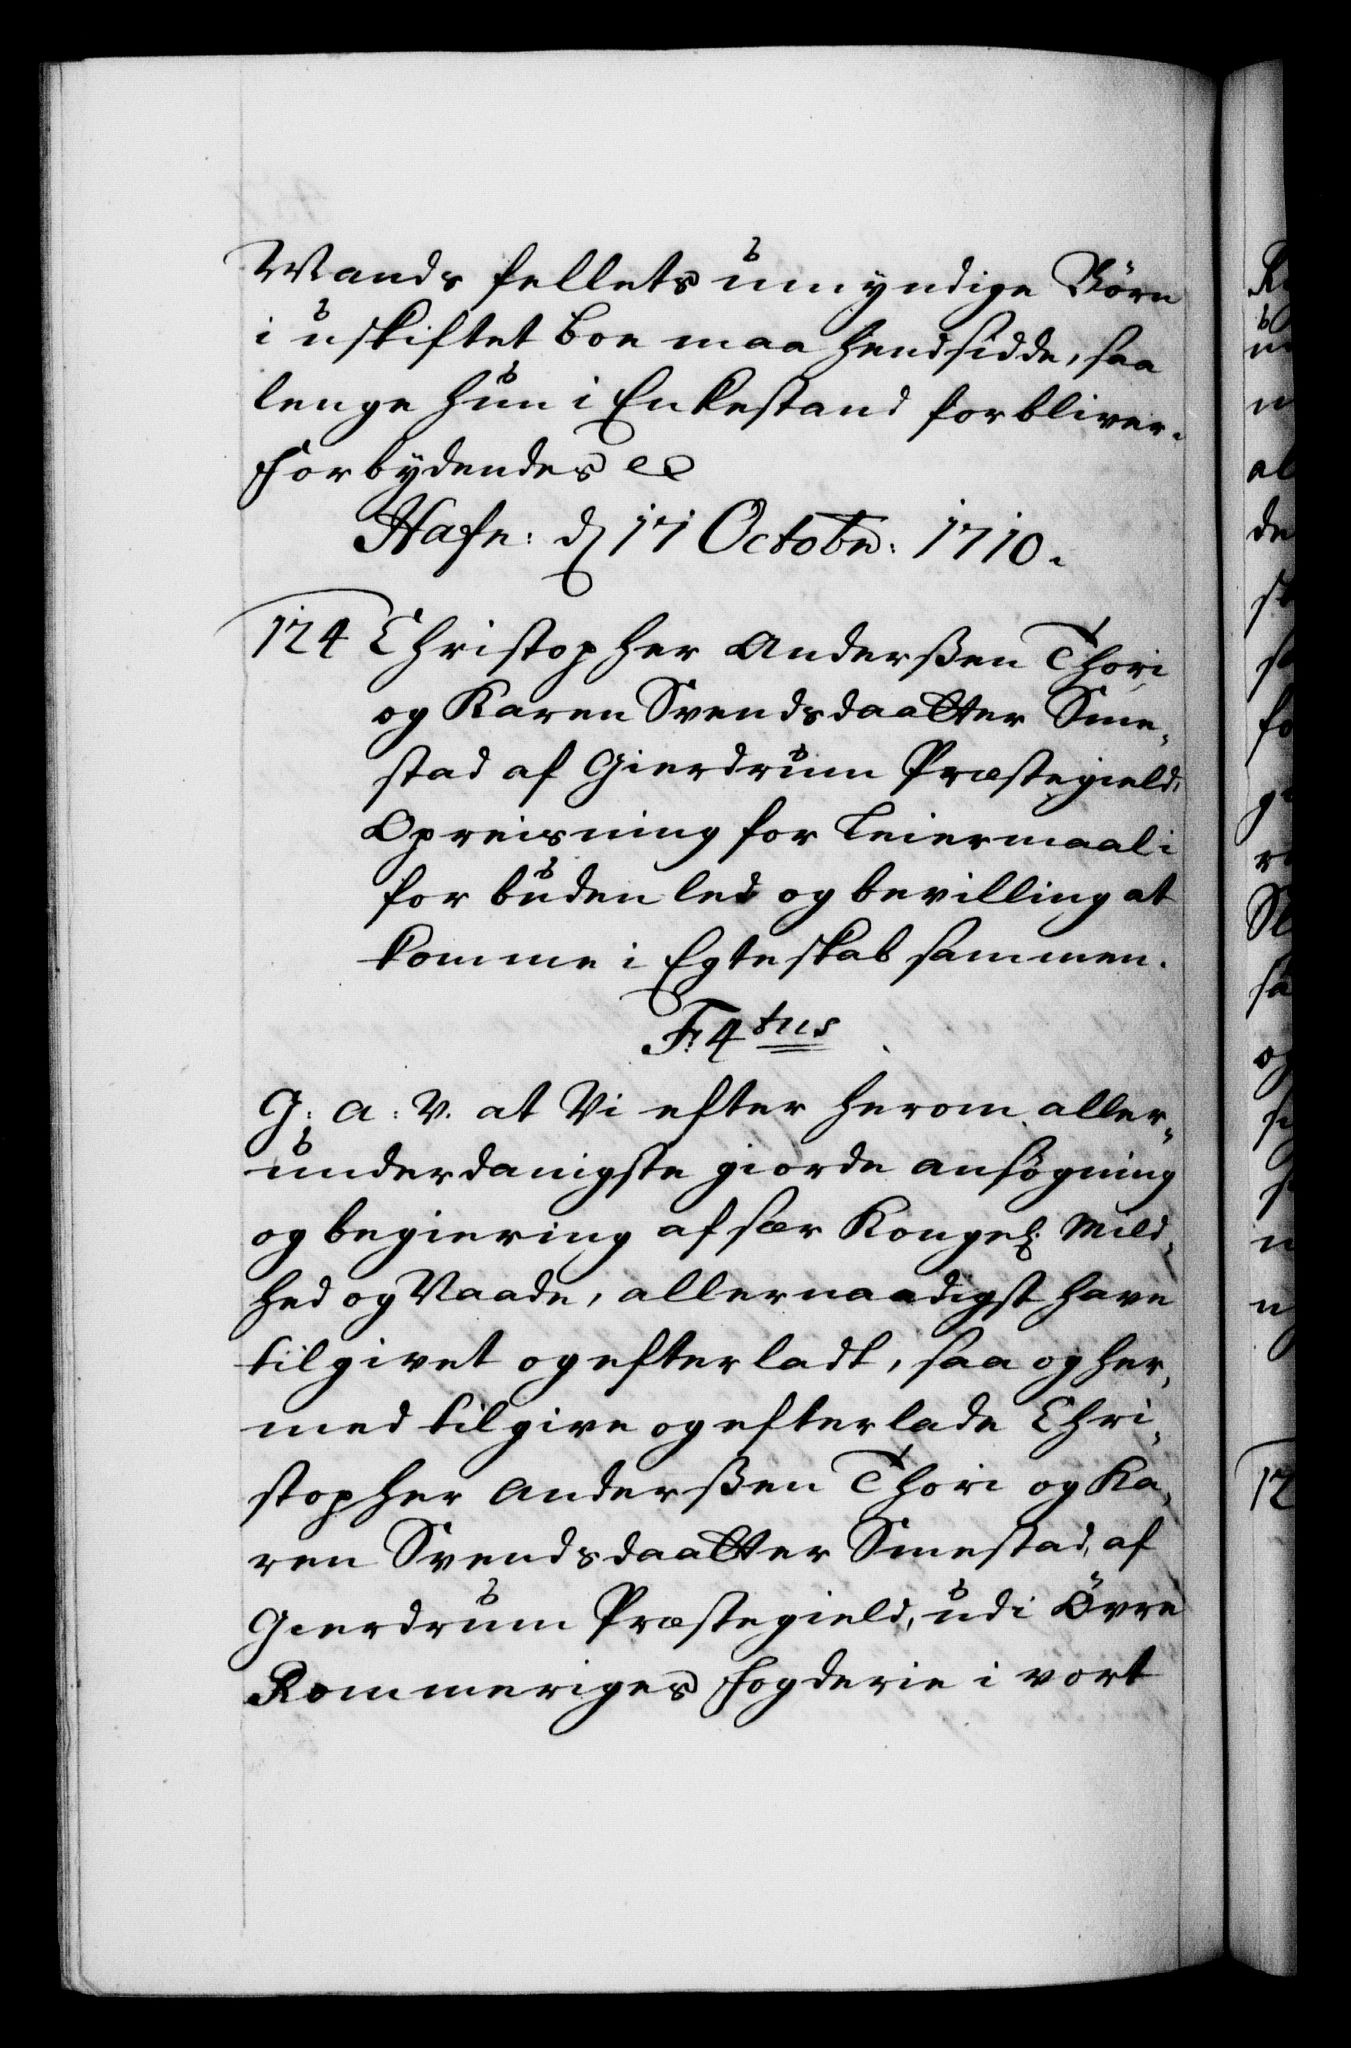 Mands fellets umyndige Børn
i uskiftet boe maa hendsidde, saa
lenge hun i Enkestand forbliver.
Forbydendes etc
Hafn: d 17 Octobr: 1710.
124 Christopher Anderßen Thori
og Karen Svendsdaatter Sme,
stad af Gierdrum Præstegield,
Opreisning for Leiermaal i
forbuden led og bevilling at
komme i Egteskab sammen.
F: 4tus
G: A: V. at Vi efter herom aller,
underdanigste giorde ansøgning
og begiering af sær Kongel: Mild,
hed og Naade, allernaadigst have
tilgivet og efterladt, saa og her,
med tilgive og efterlade Chri,
stopher Anderßen Thori og Ka,
ren Svendsdaatter Smestad, af
Gierdrum Præstegield, udi Övre
Rommeriges Fogderie i vort